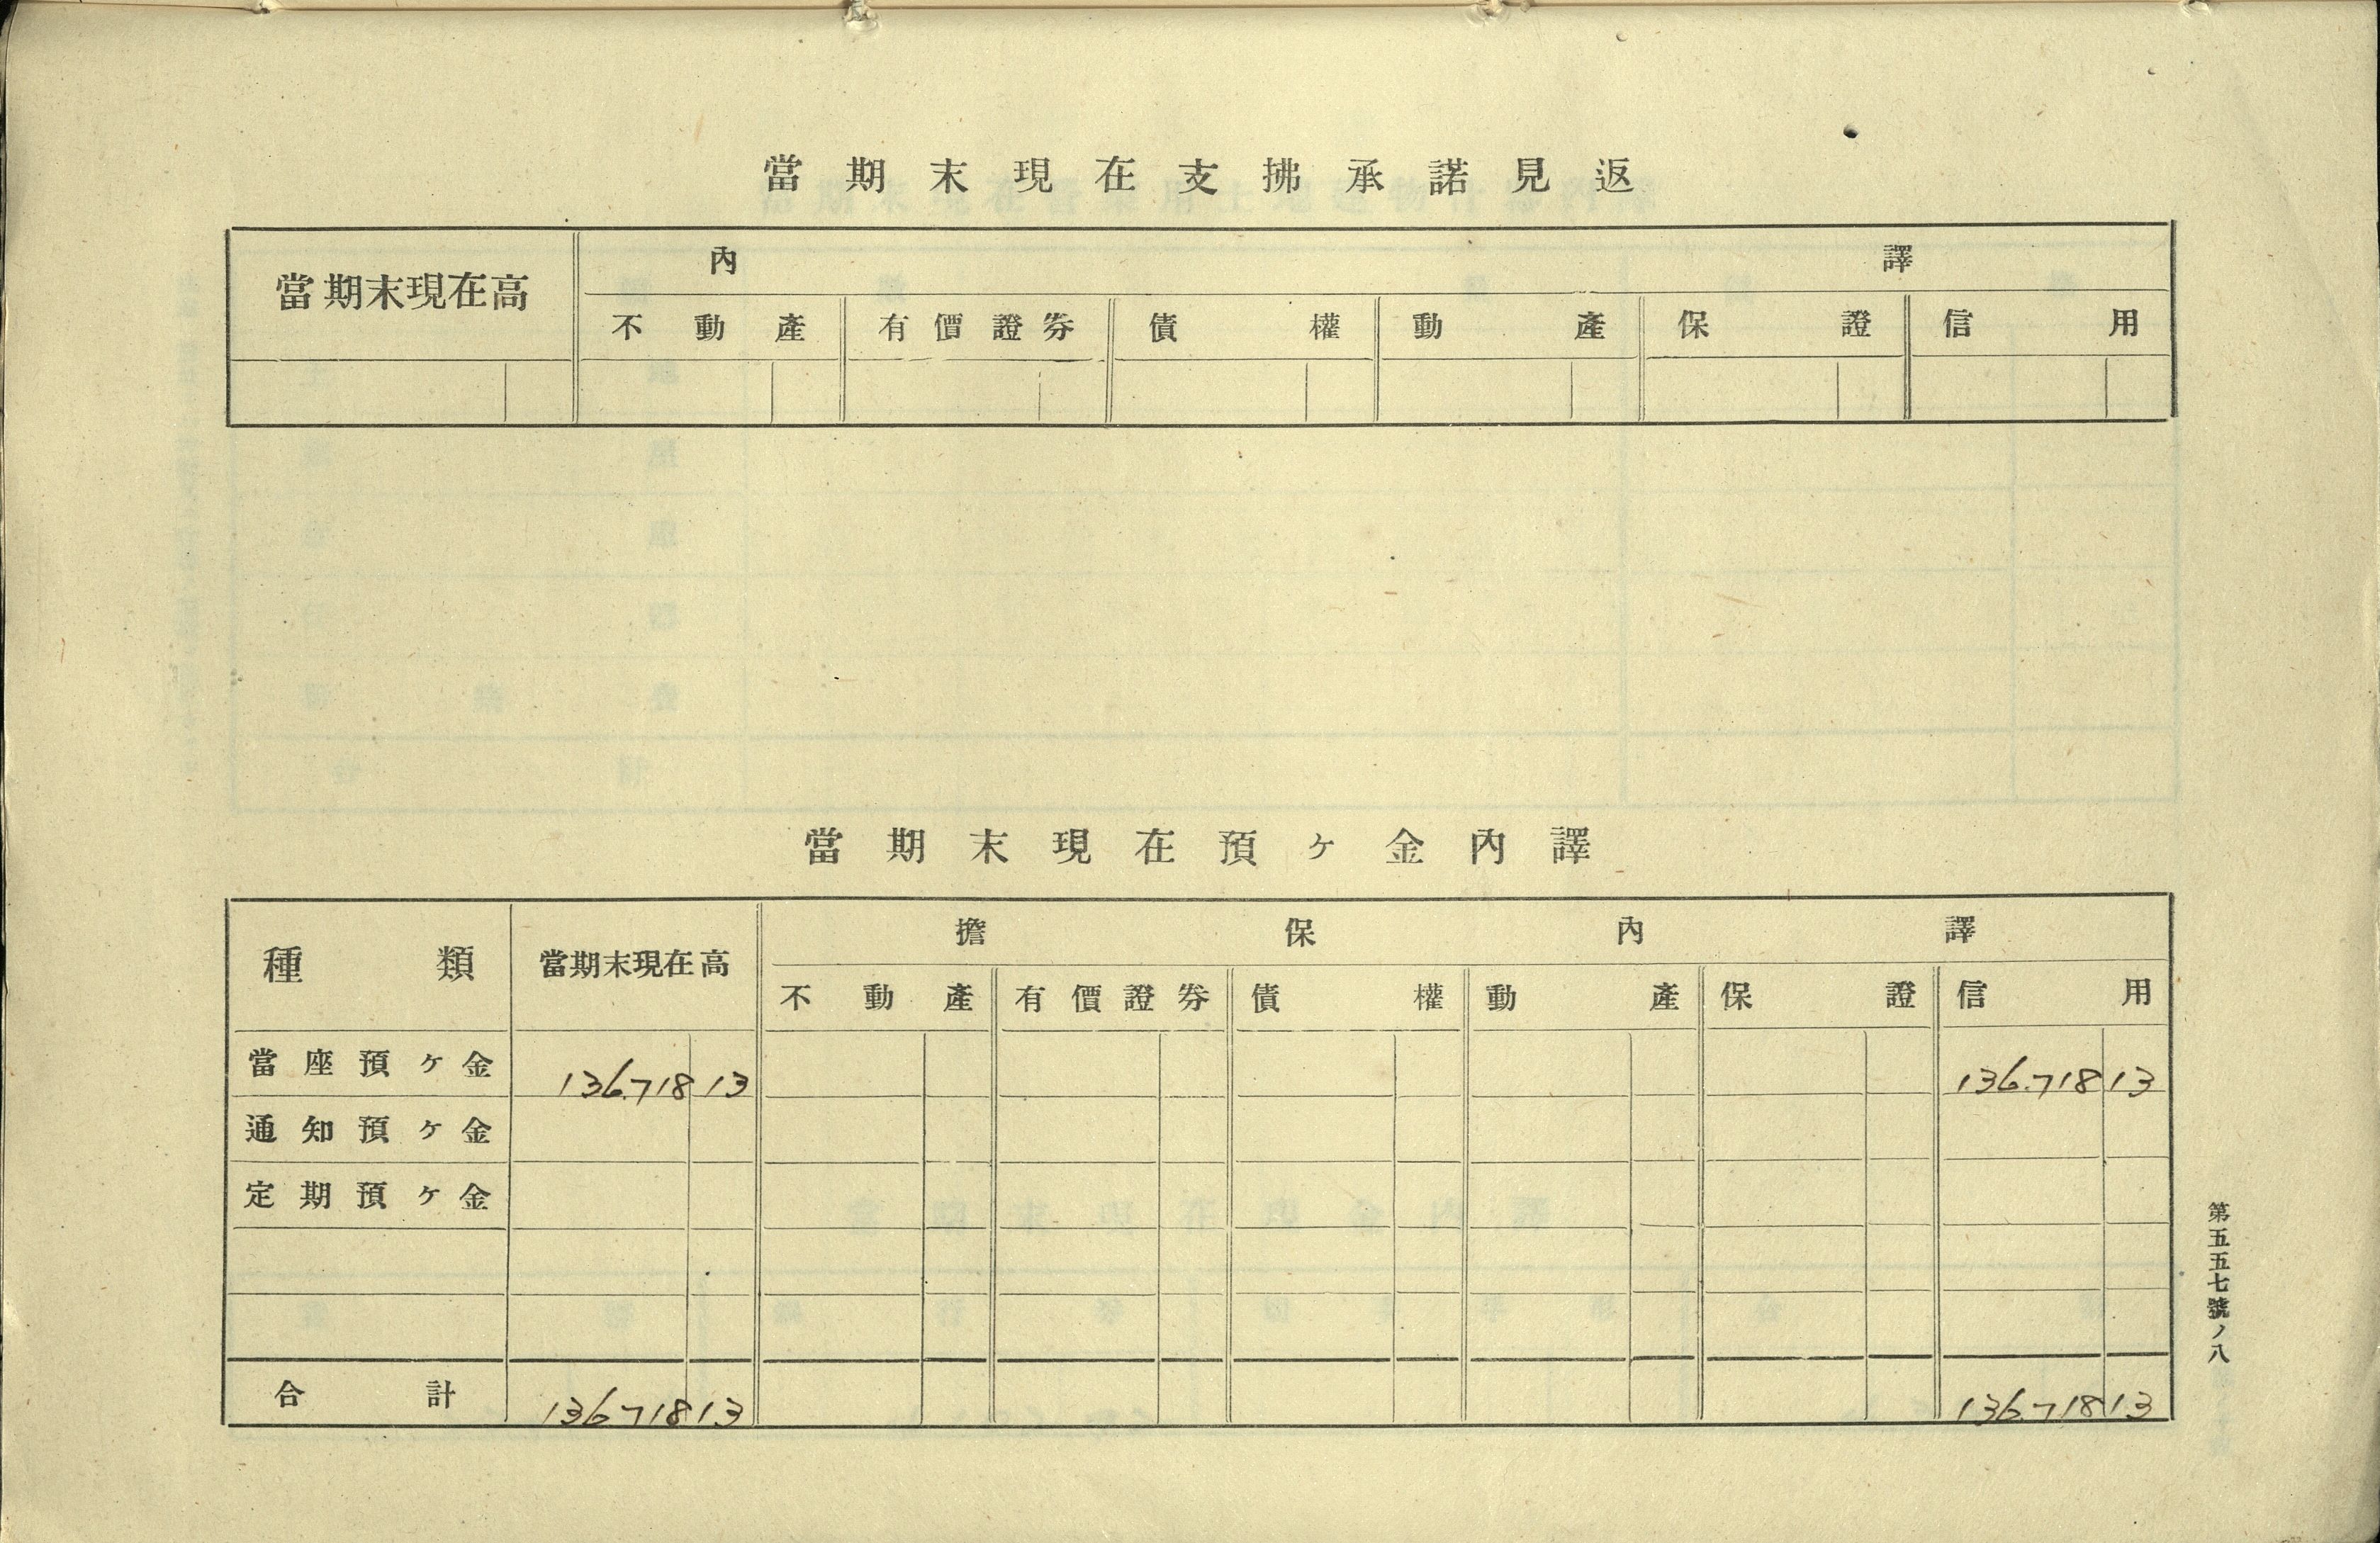 當期末現在支拂承諾見返
當期末現在高 內譯
不動產 有價證券 債權 動產 保證 信用
當期末現在預ヶ金內譯
種類 當期末現在高 擔保內譯
不動產 有價證券 債權 動產 保證 信用
當座預ヶ金 136.718 13 136.718 13
通知預ヶ金
定期預ヶ金
合計 136718 13 136.718 13
第五五七號ノ八